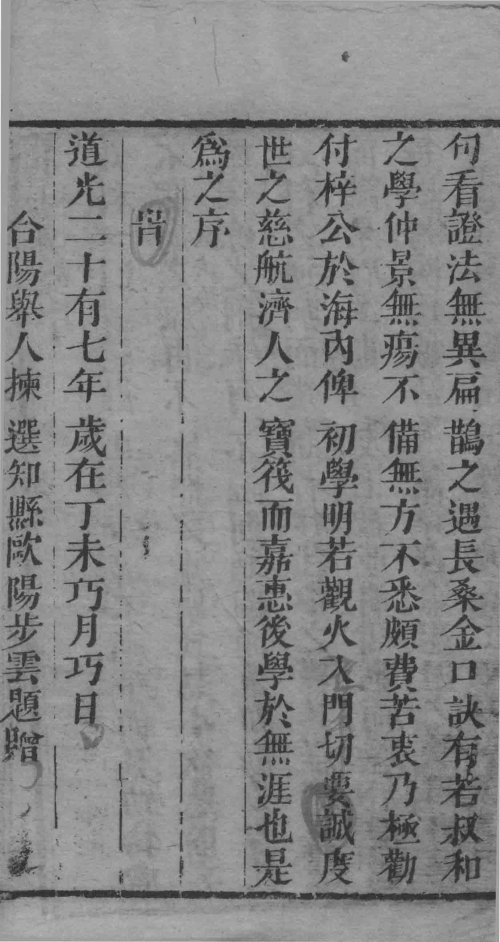 何看證法無異扁鵲之遇長桑金口訣有若叔和
之學仲景無瘍不備無方不悉頗費苦衷乃極勸
付梓公於海內俾初學明若觀火入門切要誠度
世之慈航濟人之寶筏而嘉惠後學於無涯也是
爲之序
旹
道光二十有七年歲在丁未巧月巧日
合陽舉人揀選知縣歐陽步雲題贈